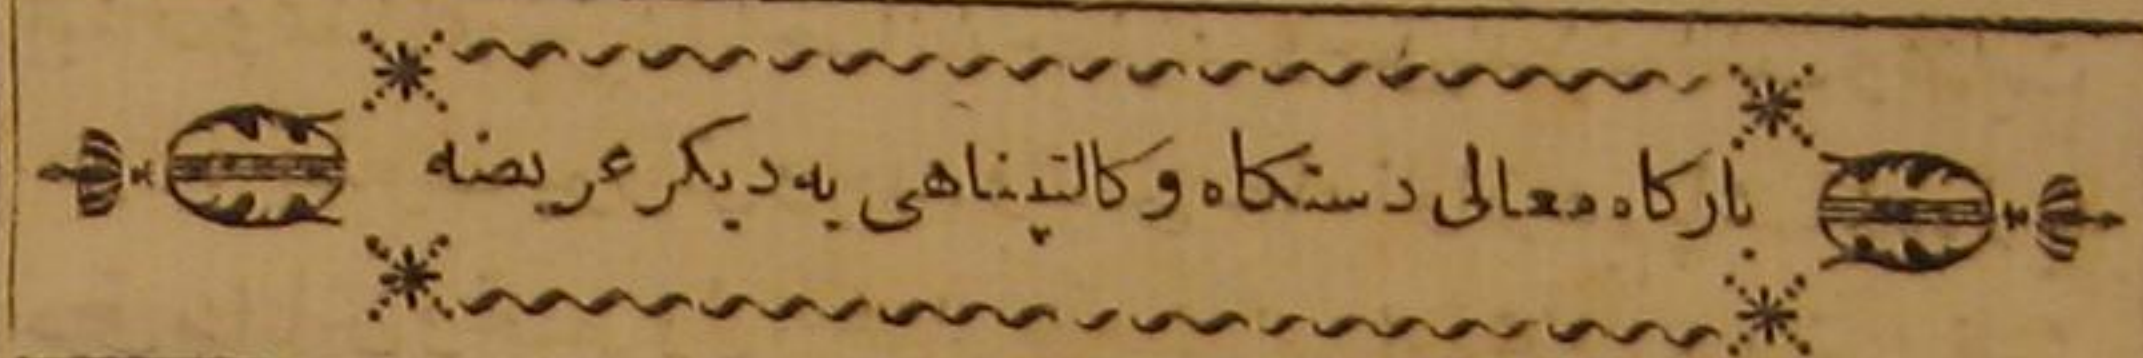 بارکاه معالی دستکاه وکالتپناهی یه دیکر عریضه